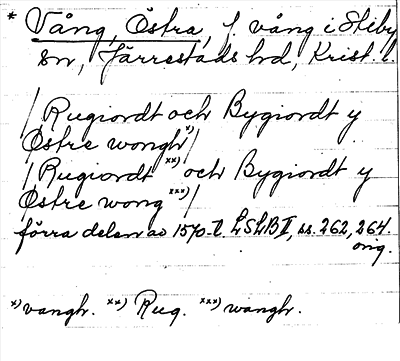 * Vång, Östra, f. vång i Skeby
sn, Järrestads hd, Krist. l.
/ Rugiordt och Bygiordt y
Östre wongh x) /
/ Rugiordt xx) och Bygiordt y
Östre wong xxx) /
förra delen av 1570-t. LSLB II, ss. 262, 264
orig.
x) vangh. xx) Rug. xxx) wangh.